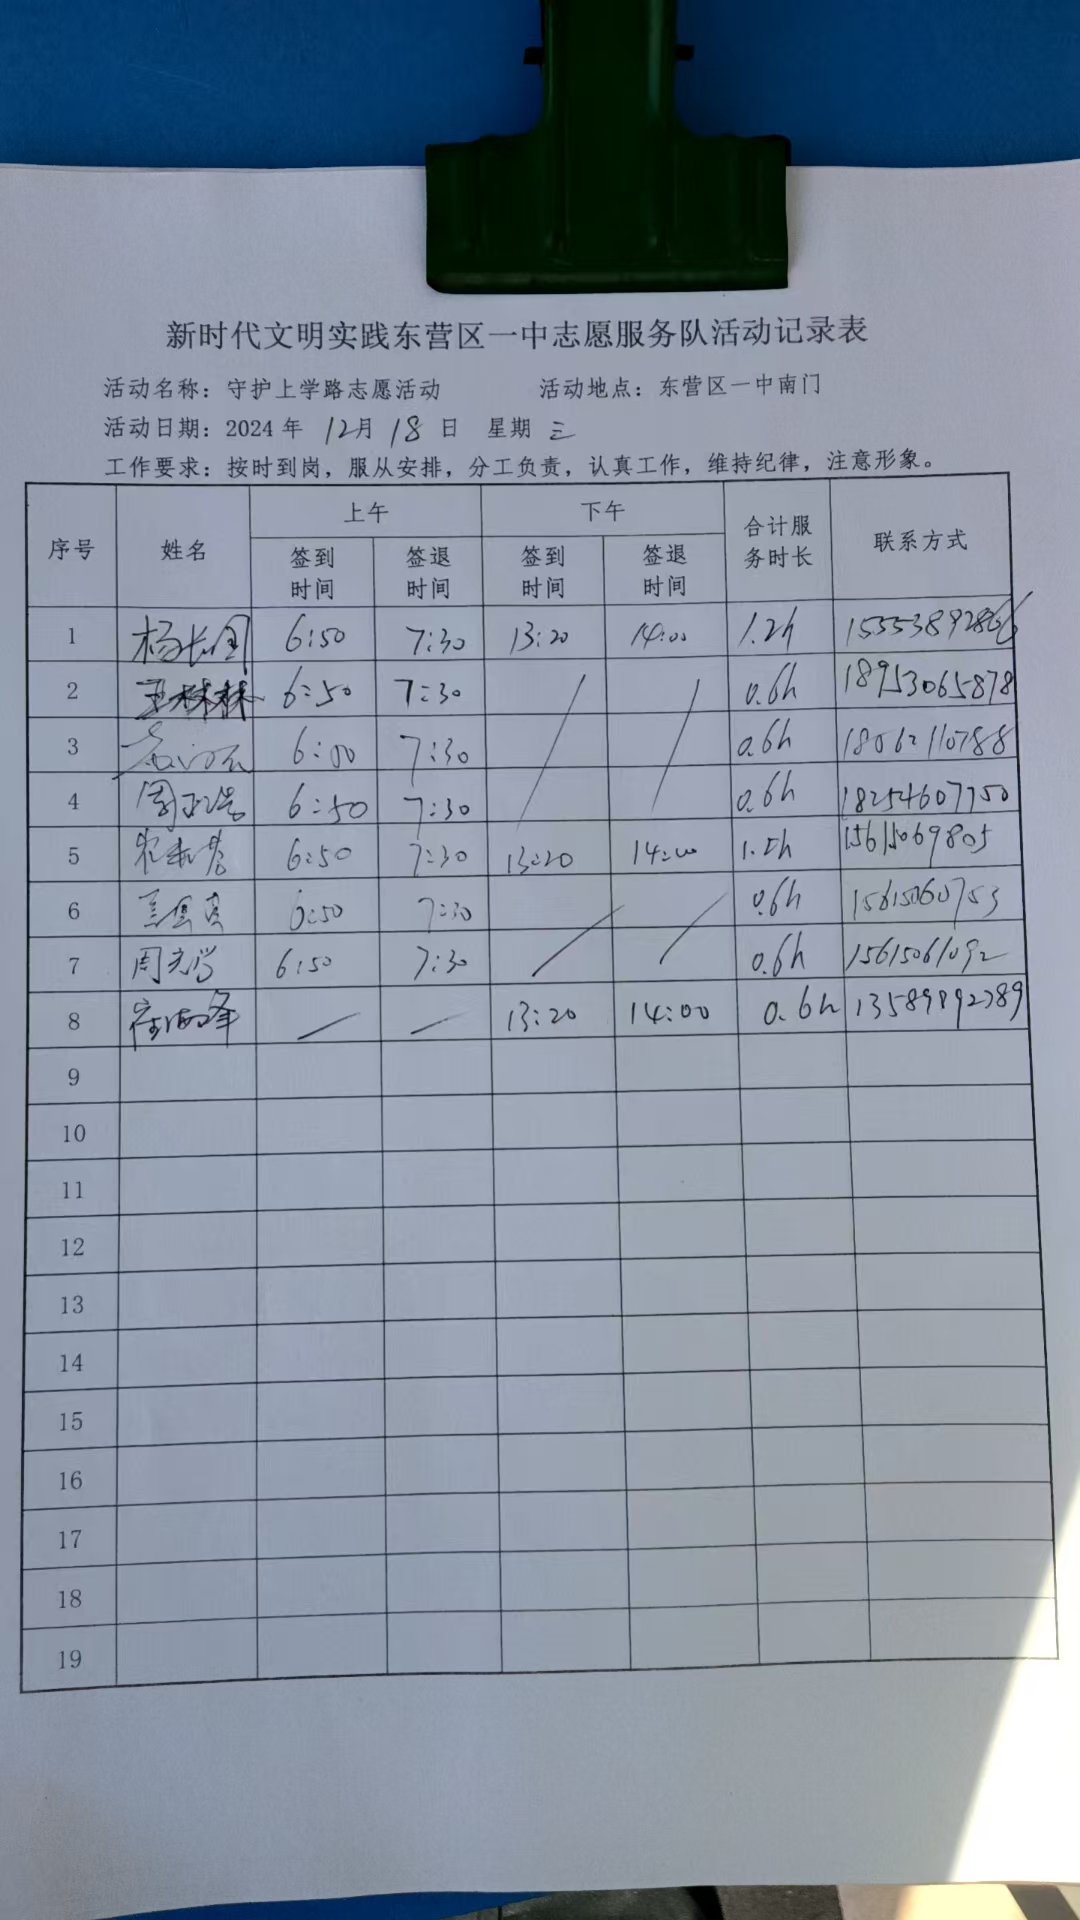 新时代文明实践东营区一中志愿服务队活动记录表
活动名称：守护上学路志愿活动 活动地点：东营区一中南门
活动日期：2024年 12月 18日 星期 三
工作要求：按时到岗，服从安排，分工负责，认真工作，维持纪律，注意形象。
序号 姓名 上午 下午 合计服务时长 联系方式
签到时间 签退时间 签到时间 签退时间
1 6:50 7:30 13:20 14:00 1.2h
2 王林林 6:50 7:30 0.6h 18953065878
3 7:30 0.6h 18062110788
4 6:50 7:30 0.6h 18254607750
5 6:50 7:30 13:20 14:00 15615069805
6 6:50 7:30 0.6h 15615060753
7 6:50 7:30 0.6h 15615061092
8 崔海峰 — — 13:20 14:00 0.6h 13589892389
9
10
11
12
13
14
15
16
17
18
19